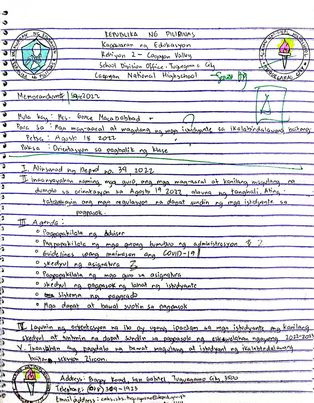 REPUBLIKA NG PILIPINAS
Kagawaran ng Edukasyon
Rehiyon 2 - Cagayan Valley
School Division Office, Tuguegarao City
Cagayan National Highschool
Memorandum
2022
Mula kay: Mrs. Grace Macababbad
Para sa: Mga mag-aaral at magulang ng mga istudyante sa ikalabindalawang baitang
Petsa: Agosto 18, 2022
Paksa: Oryentasyon sa pagbalik ng klase
I. Alinsunod ng Deped no. 39, 2022
II. Inaanyayahan naming mga guro, ang mga mag-aaral at kanilang magulang, na
dumalo sa orientasyon sa Agosto 19, 2022, alauna ng tanghali. Ating
tatalakayin ang mga regulasyon na dapat sundin ng mga istudyante sa
pagpasok.
III. Agenda:
Pagpapakilala ng Adviser
Pagpapakilala ng mga gurong bumubuo ng administrasyon
Guidelines upang maiwasan ang COVID-19
skedyul ng asignatura
Pagpapakilala ng mga guro sa asignatura
skedyul ng pagpasok ng bawat istudyante
sistema ng paggrado
Mga dapat at bawal suotin sa pagpasok
IV. Layunin ng oryentasyon na ito ay upang ipaalam sa mga istudyante ang kanilang
skedyul at dapat sundin sa pagpasok ng eskwelahan ngayong 2022-2023
V. Inaasahan ang pagdalo ng bawat magulang at istudyante ng ikalabindalawang
baitang, seksyon Zircon.
Address: Bagay Road, San Gabriel Tuguegarao City, 3500
Telefono: 309-1923
Email address: